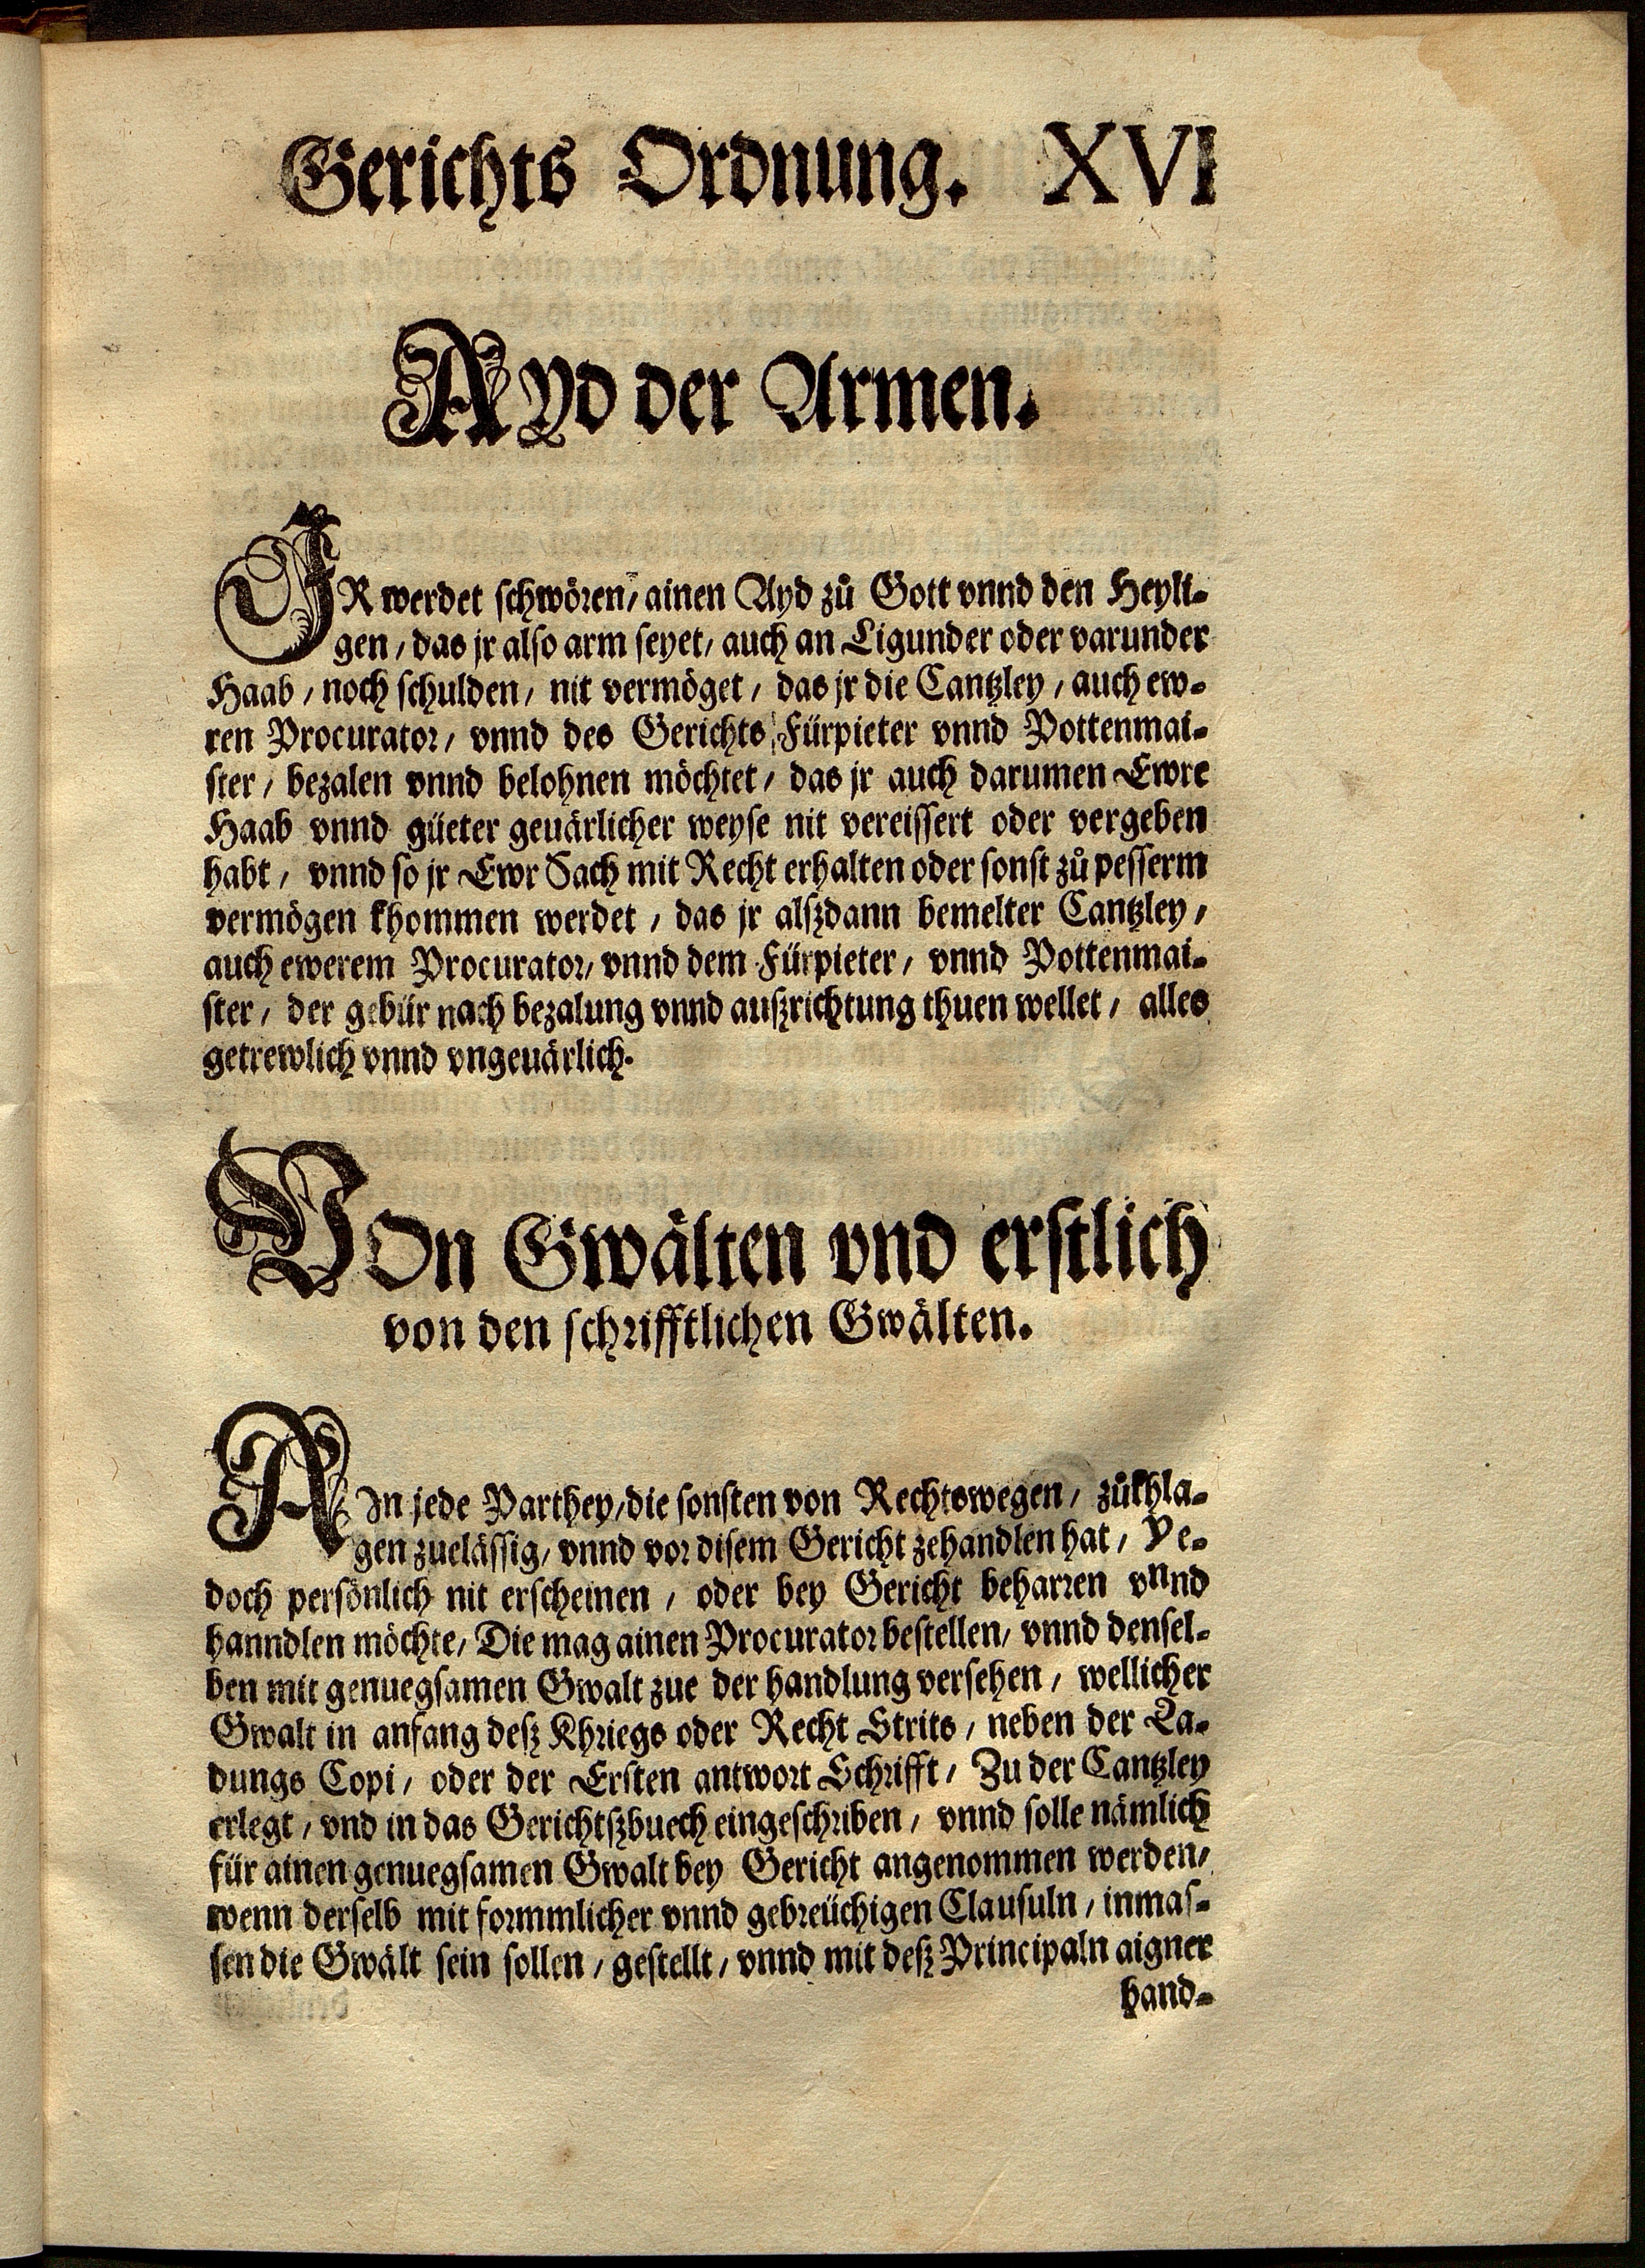 Gerichts Ordnung. XVI
AYd der Armen.
IR werdet schwören, ainen Ayd zů Gott vnnd den Heyli-
gen / das jr also arm seyet / auch an Ligunder oder varunder
Haab / noch schulden / nit vermöget / das jr die Cantzley / auch ew-
ren Procurator / vnnd des Gerichts Fürpieter vnnd Pottenmai-
ster / bezalen vnnd belohnen möchtet / das jr auch darumen Ewre
Haab vnnd güeter geuärlicher weyse nit vereissert oder vergeben
habt / vnnd so jr Ewr Sach mit Recht erhalten oder sonst zů pesserm
vermögen khommen werdet / das jr alßdann bemelter Cantzley /
auch ewerem Procurator / vnnd dem Fürpieter / vnnd Pottenmai-
ster / der gebür nach bezalung vnnd außrichtung thuen wellet / alles
getrewlich vnnd vngeuärlich.
VOn Gwälten vnd erstlich
von den schrifftlichen Gwälten.
AIn jede Parthey / die sonsten von Rechtswegen / zůkhla-
gen zuelässig / vnnd vor disem Gericht zehandlen hat / Ye-
doch persönlich nit erscheinen / oder bey Gericht beharren vnnd
hanndlen möchte / Die mag ainen Procurator bestellen / vnnd densel-
ben mit genuegsamen Gwalt zue der handlung versehen / wellicher
Gwalt in anfang deß Khriegs oder Recht Strits / neben der La-
dungs Copi / oder der Ersten antwort Schrifft / Zu der Cantzley
erlegt / vnd in das Gerichtßbuech eingeschriben / vnnd solle nämlich
für ainen genuegsamen Gwalt bey Gericht angenommen werden /
wenn derselb mit formmlicher vnnd gebreüchigen Clausuln / inmas-
sen die Gwält sein sollen / gestellt / vnnd mit deß Principaln aigner
hand-